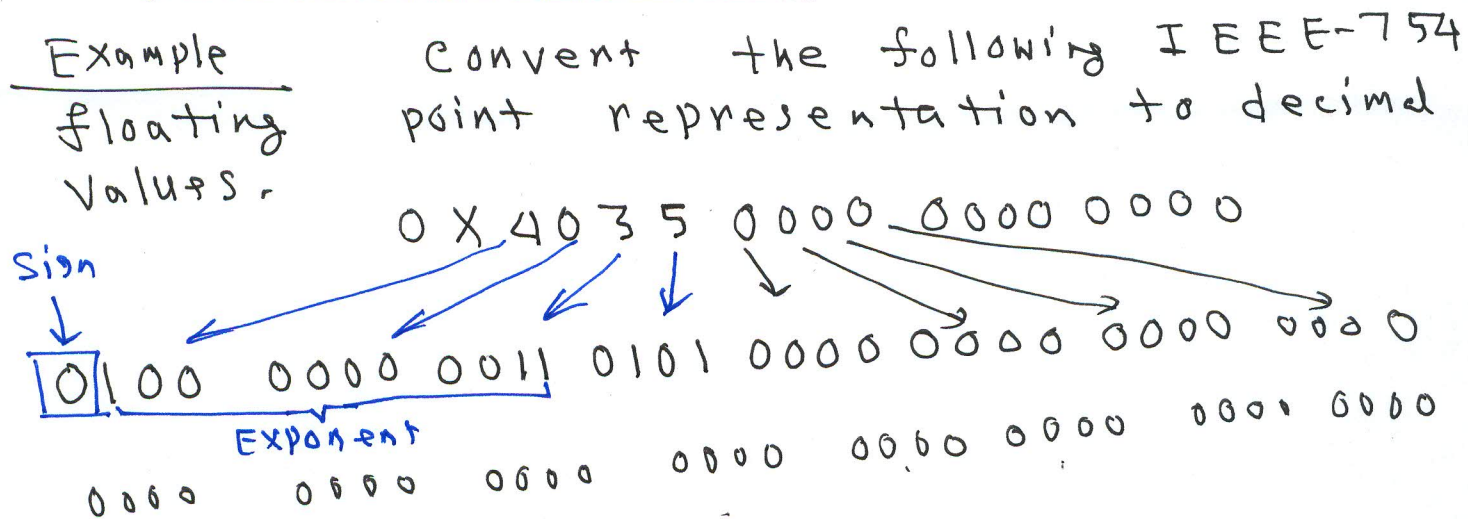 Example Convert the following IEEE-754
floating point representation to decimal
values.
0X4035 0000 0000 0000
Sign
0100 0000 0011 0101 0000 0000 0000 0000
Exponent
0000 0000 0000 0000 0000 0000 0000 0000